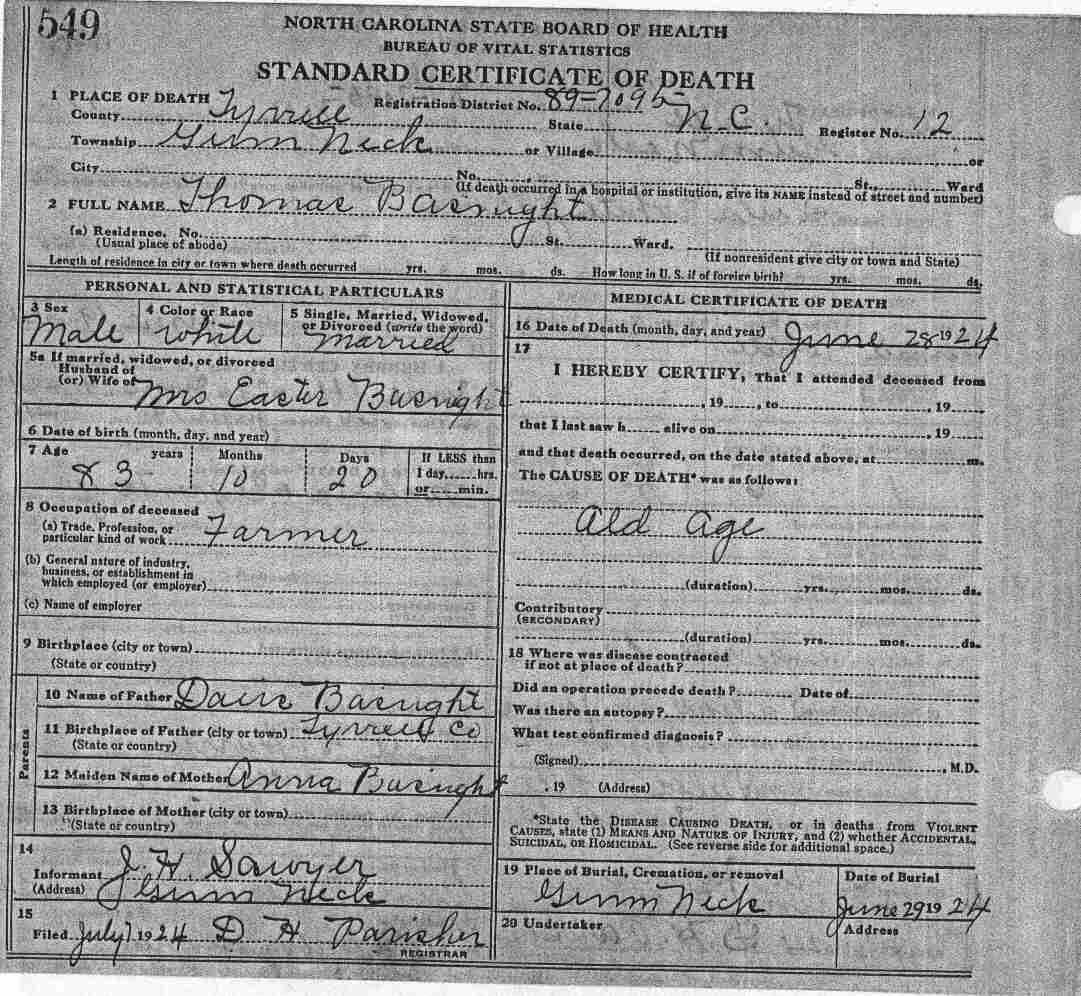 549
NORTH CAROLINA STATE BOARD OF HEALTH
BUREAU OF VITAL STATISTICS
STANDARD CERTIFICATE OF DEATH
1 PLACE OF DEATH Registration District No. 89-7095
County Tyrrell State N.C. Register No. 12
Township Gum Neck or Village or
City No. St., Ward
(If death occurred in a hospital or institution, give its NAME instead of street and number)
2 FULL NAME Thomas Basnight
(a) Residence. No. St. Ward.
(Usual place of abode) (If nonresident give city or town and State)
Length of residence in city or town where death occurred yrs. mos. ds. How long in U. S. if of foreign birth? yrs. mos. ds.
PERSONAL AND STATISTICAL PARTICULARS
3 Sex 4 Color or Race 5 Single, Married, Widowed, or Divorced (write the word)
Male white married
5a If married, widowed, or divorced
Husband of
(or) Wife of Mrs Easter Basnight
6 Date of birth (month, day, and year)
7 Age years Months Days If LESS than
83 10 20 1 day, hrs.
or min.
8 Occupation of deceased
(a) Trade, Profession, or
particular kind of work Farmer
(b) General nature of industry,
business, or establishment in
which employed (or employer)
(c) Name of employer
9 Birthplace (city or town)
(State or country)
Parents
10 Name of Father Basnight
11 Birthplace of Father (city or town) Tyrrell Co
(State or country)
12 Maiden Name of Mother Anna Basnight
13 Birthplace of Mother (city or town)
(State or country)
14
Informant J. H. Sawyer
(Address) Gum Neck
15
Filed July 1 1924 D H Parisher
REGISTRAR
MEDICAL CERTIFICATE OF DEATH
16 Date of Death (month, day, and year) June 28 1924
17
I HEREBY CERTIFY, That I attended deceased from
, 19 , to , 19
that I last saw h alive on , 19
and that death occurred, on the date stated above, at m.
The CAUSE OF DEATH* was as follows:
ald age
(duration) yrs. mos. ds.
Contributory
(SECONDARY)
(duration) yrs. mos. ds.
18 Where was disease contracted
if not at place of death?
Did an operation precede death? Date of
Was there an autopsy?
What test confirmed diagnosis?
(Signed) , M.D.
, 19 (Address)
*State the DISEASE CAUSING DEATH, or in deaths from VIOLENT
CAUSES, state (1) MEANS AND NATURE OF INJURY, and (2) whether ACCIDENTAL,
SUICIDAL, OR HOMICIDAL. (See reverse side for additional space.)
19 Place of Burial, Cremation, or removal Date of Burial
Gum Neck June 29 1924
20 Undertaker Address